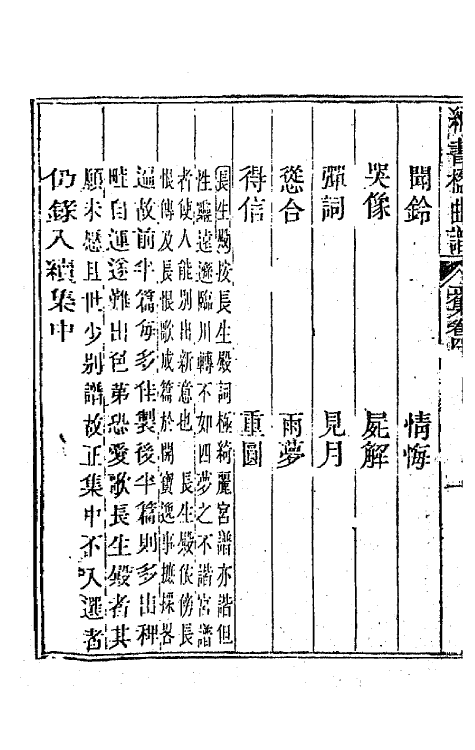 納書楹曲譜 續集卷
聞鈴 情悔
哭像 屍解
彈詞 見月
慫合 雨夢
得信 重圓
長生殿按長生殿詞極綺麗宮譜亦諧但
性靈遠遜臨川轉不如四夢之不諧宮譜
者使人能別出新意也 長生殿依傍長
恨傳及長恨歌成篇於開寶逸事摭採畧
遍故前半篇每多佳製後半篇則多出稗
畦自運遂難出色第恐愛歌長生殿者其
願未愜且世少別譜故正集中不入選者
仍錄入續集中
一